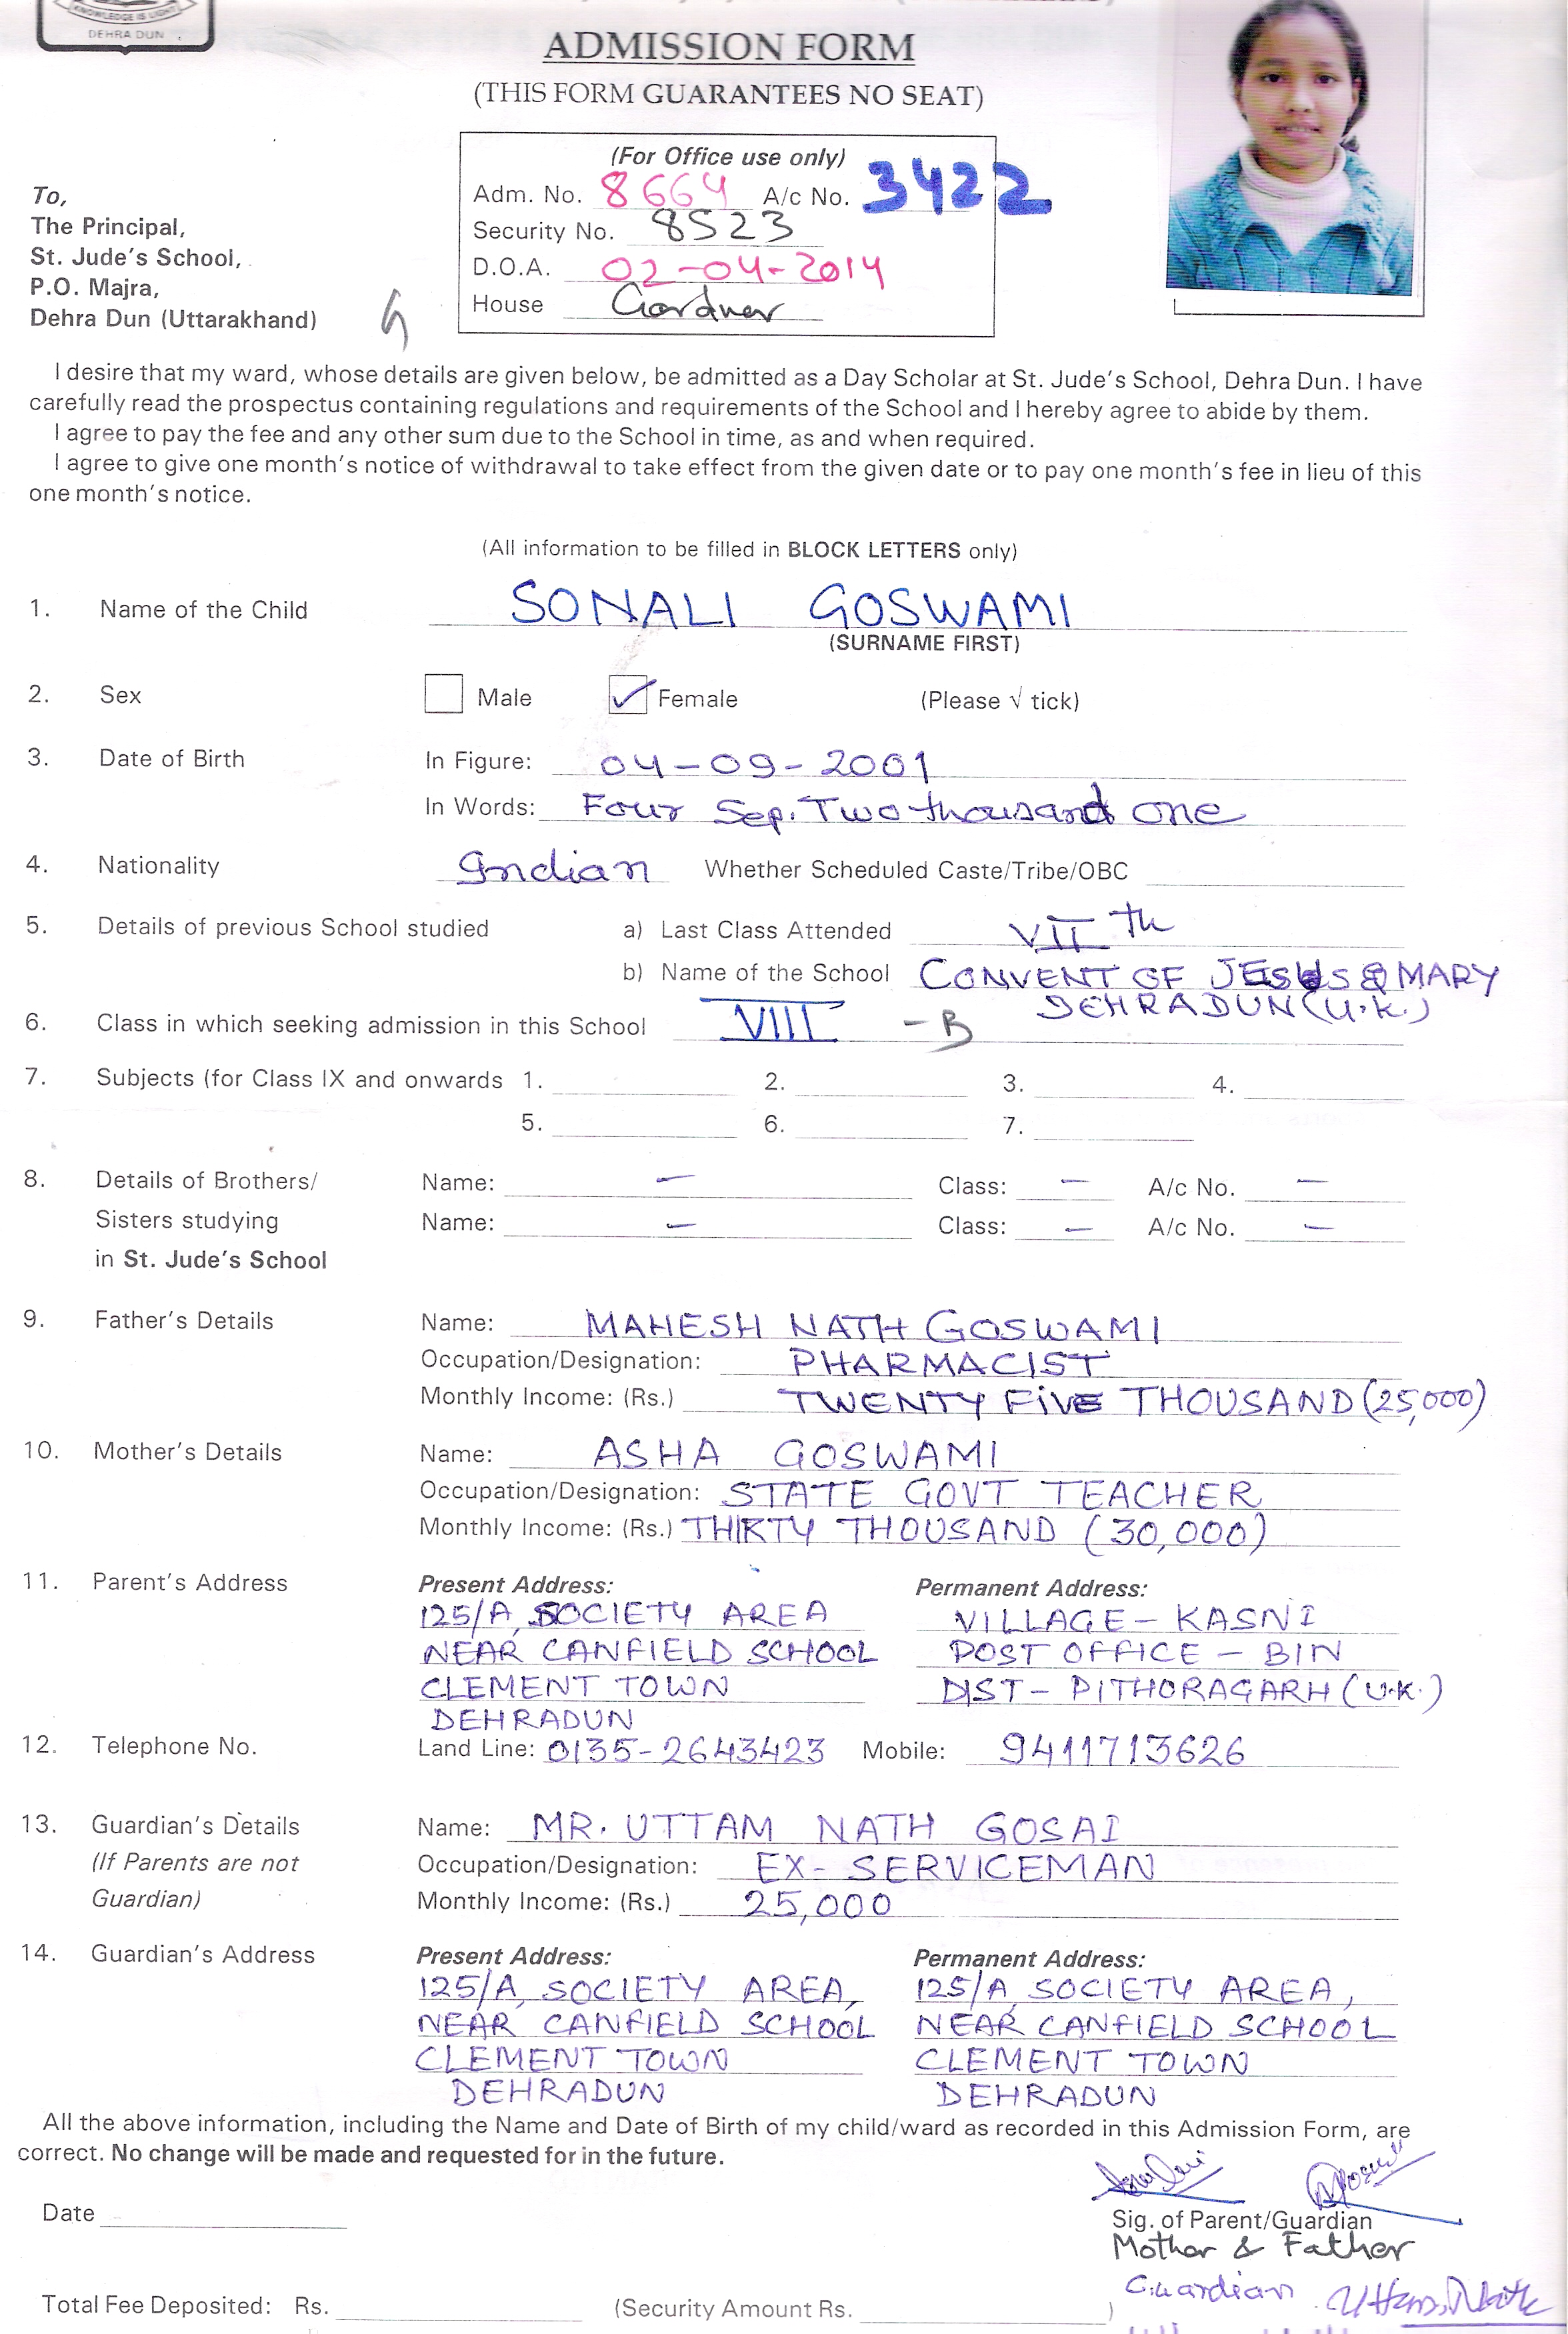 KNOWLEDGE IS LIGHT
DEHRA DUN
ADMISSION FORM
(THIS FORM GUARANTEES NO SEAT)
(For Office use only)
Adm. No. 8664 A/c No. 3422
Security No. 8523
D.O.A. 02-04-2014
House Gardner
To,
The Principal,
St. Jude's School,
P.O. Majra,
Dehra Dun (Uttarakhand)
I desire that my ward, whose details are given below, be admitted as a Day Scholar at St. Jude's School, Dehra Dun. I have
carefully read the prospectus containing regulations and requirements of the School and I hereby agree to abide by them.
I agree to pay the fee and any other sum due to the School in time, as and when required.
I agree to give one month's notice of withdrawal to take effect from the given date or to pay one month's fee in lieu of this
one month's notice.
(All information to be filled in BLOCK LETTERS only)
1. Name of the Child SONALI GOSWAMI
(SURNAME FIRST)
2. Sex Male ✓ Female (Please √ tick)
3. Date of Birth In Figure: 04-09-2001
In Words: Four Sep. Two thousand one
4. Nationality Indian Whether Scheduled Caste/Tribe/OBC
5. Details of previous School studied a) Last Class Attended VII th
b) Name of the School CONVENT OF JESUS & MARY
DEHRADUN (U.K.)
6. Class in which seeking admission in this School VIII - B
7. Subjects (for Class IX and onwards 1. 2. 3. 4.
5. 6. 7.
8. Details of Brothers/ Name: — Class: — A/c No. —
Sisters studying Name: — Class: — A/c No. —
in St. Jude's School
9. Father's Details Name: MAHESH NATH GOSWAMI
Occupation/Designation: PHARMACIST
Monthly Income: (Rs.) TWENTY FIVE THOUSAND (25,000)
10. Mother's Details Name: ASHA GOSWAMI
Occupation/Designation: STATE GOVT TEACHER
Monthly Income: (Rs.) THIRTY THOUSAND (30,000)
11. Parent's Address Present Address: Permanent Address:
125/A, SOCIETY AREA VILLAGE - KASNI
NEAR CANFIELD SCHOOL POST OFFICE - BIN
CLEMENT TOWN DIST - PITHORAGARH (U.K.)
DEHRADUN
12. Telephone No. Land Line: 0135-2643423 Mobile: 9411713626
13. Guardian's Details Name: MR. UTTAM NATH GOSAI
(If Parents are not Occupation/Designation: EX-SERVICEMAN
Guardian) Monthly Income: (Rs.) 25,000
14. Guardian's Address Present Address: Permanent Address:
125/A, SOCIETY AREA, 125/A, SOCIETY AREA,
NEAR CANFIELD SCHOOL NEAR CANFIELD SCHOOL
CLEMENT TOWN CLEMENT TOWN
DEHRADUN DEHRADUN
All the above information, including the Name and Date of Birth of my child/ward as recorded in this Admission Form, are
correct. No change will be made and requested for in the future.
Date
Sig. of Parent/Guardian
Mother & Father
Guardian Uttam Nath
Total Fee Deposited: Rs. (Security Amount Rs. )